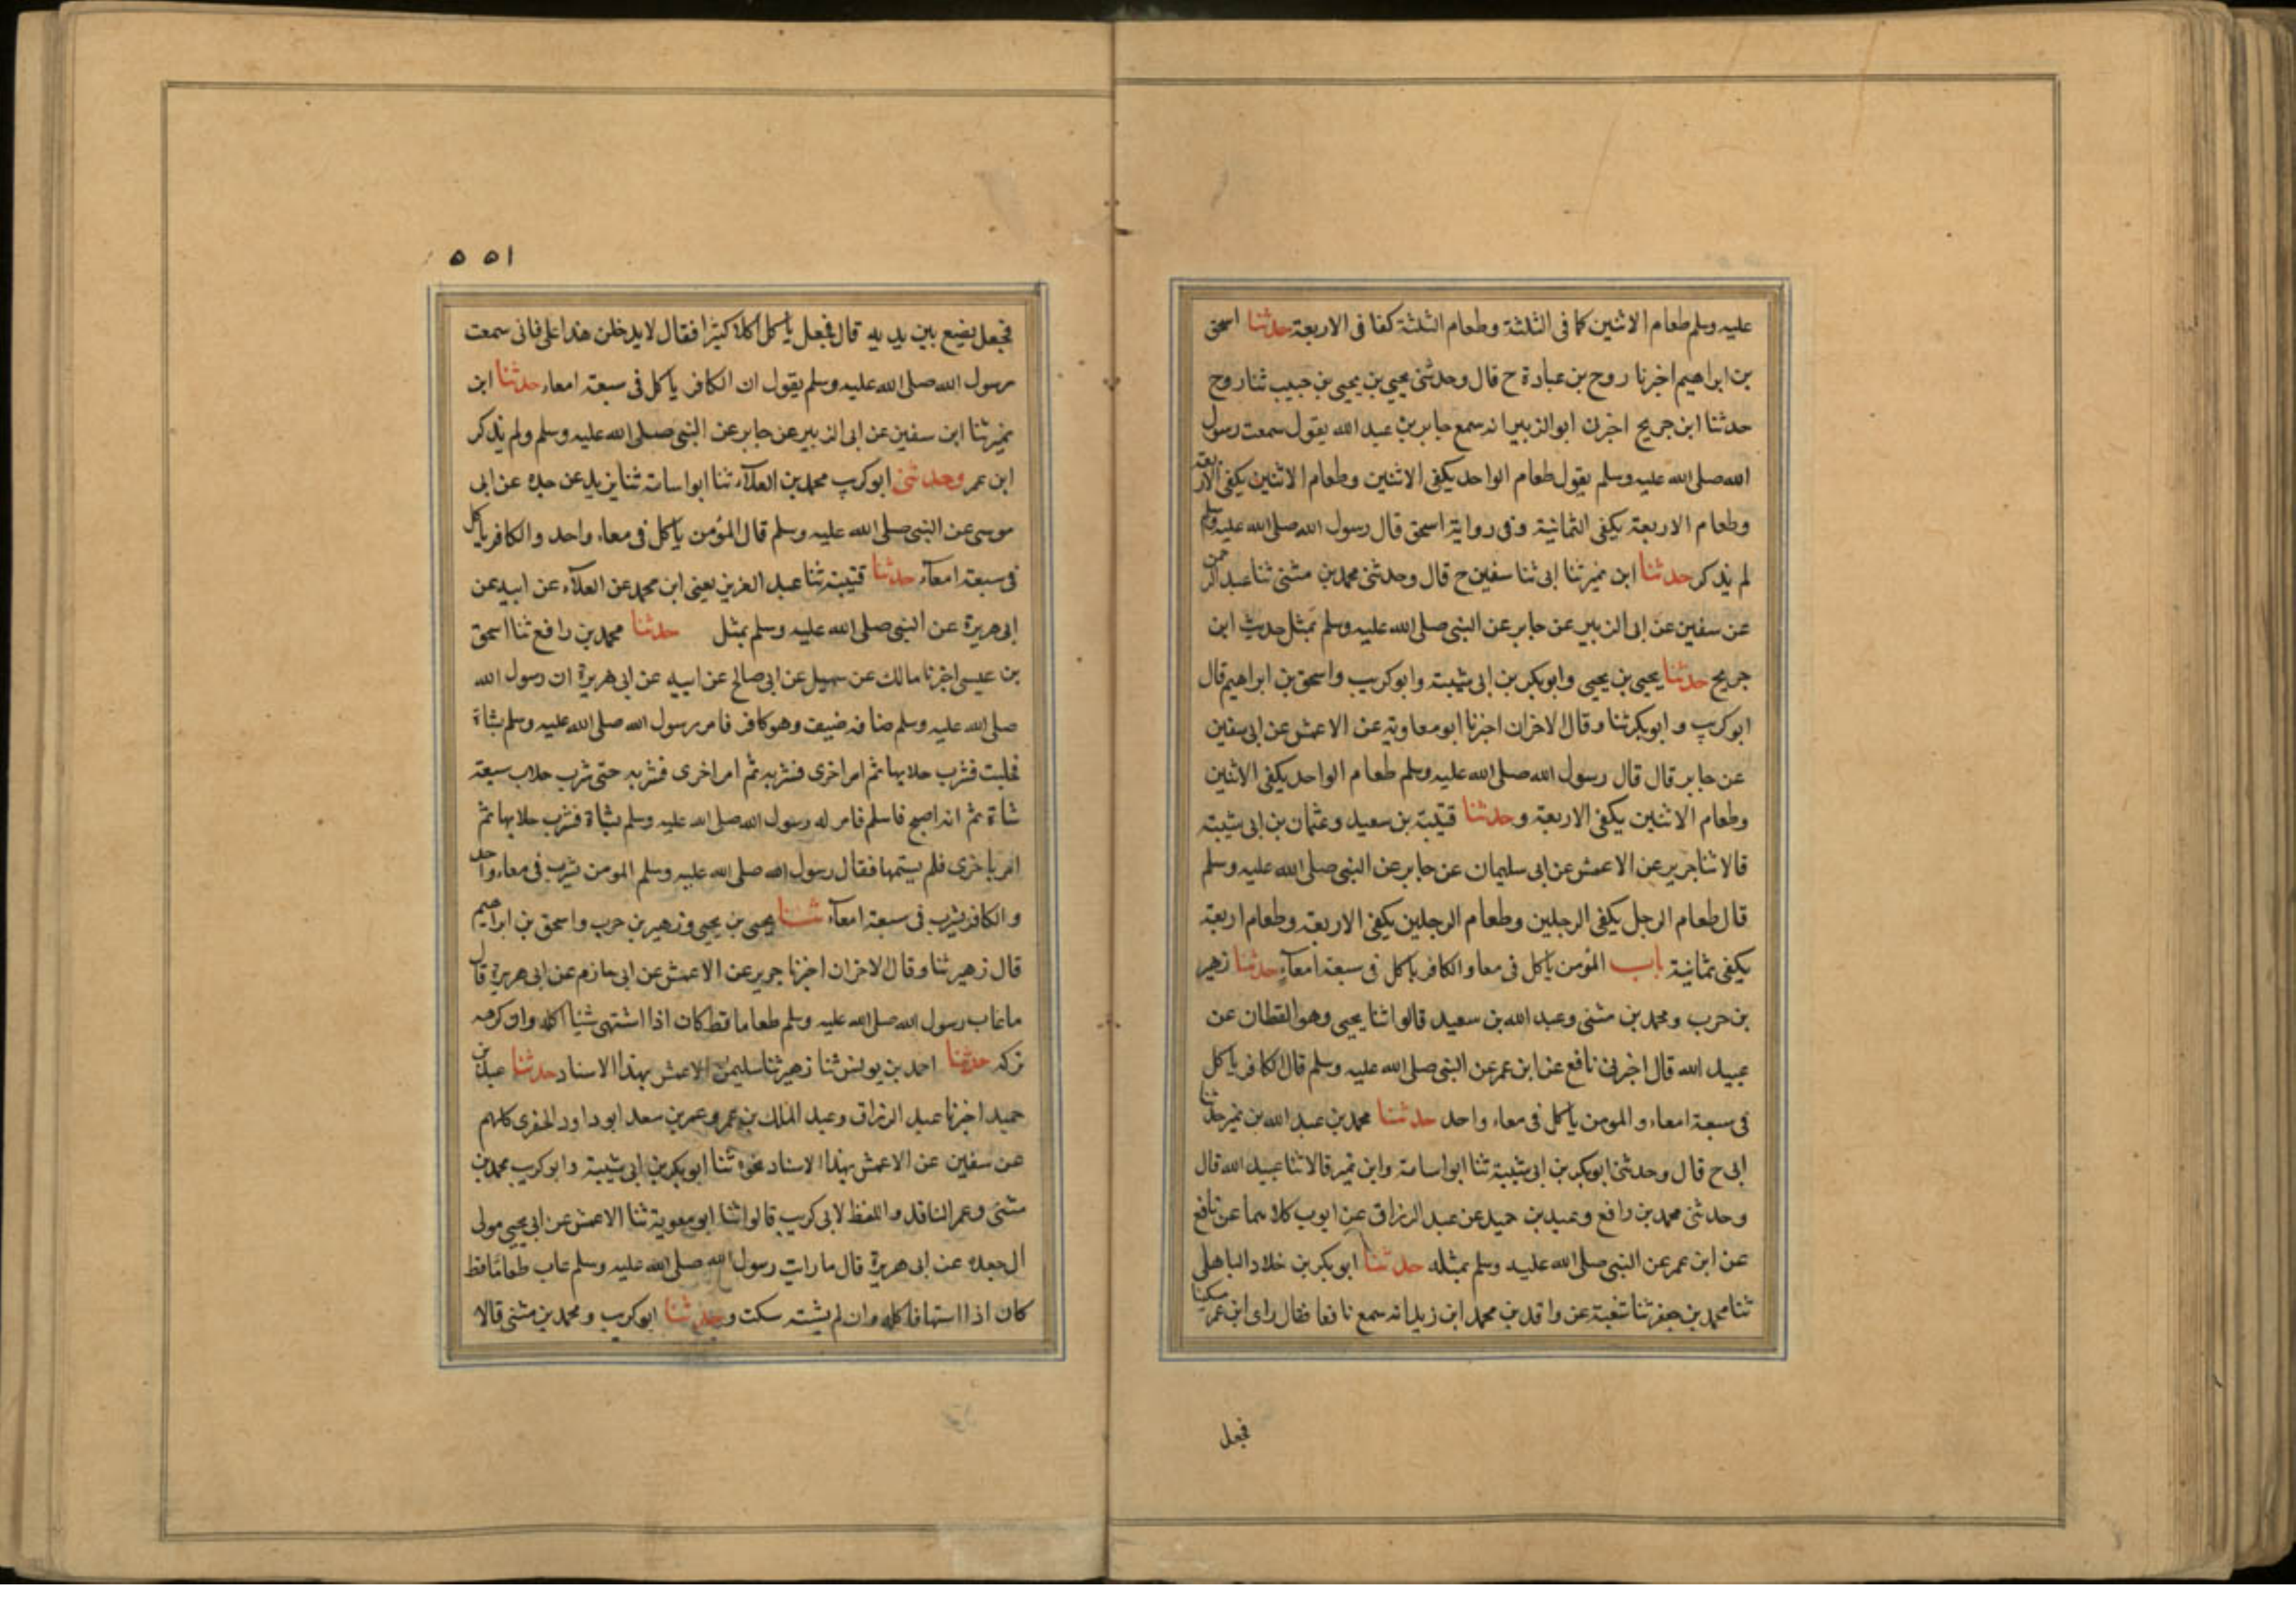 عليه وسلم طعام الاثنين كافى الثلثة وطعام الثلثة كفا فى الاربعة حدثنا اسحق
بن ابراهيم اخبرنا روح بن عبادة ح قال وحدثنى يحيى بن يحيى بن حبيب ثنا روح
حدثنا ابن جريج اخبرنى ابو الزبير انه سمع جابر بن عبد الله يقول سمعت رسول
الله صلى الله عليه وسلم يقول طعام الواحد يكفى الاثنين وطعام الاثنين يكفى الاربعة
وطعام الاربعة يكفى الثمانية وفى رواية اسحق قال رسول الله صلى الله عليه وسلم
لم يذكر حدثنا ابن نمير ثنا ابى ثنا سفين ح قال وحدثنى محمد بن مثنى ثنا عبد الرحمن
عن سفين عن ابى الزبير عن جابر عن النبى صلى الله عليه وسلم بمثل حديث ابن
جريج حدثنا يحيى بن يحيى وابوبكر بن ابى شيبة وابوكريب واسحق بن ابراهيم قال
ابوكريب و ابوبكر ثنا وقال الاخران اخبرنا ابو معاوية عن الاعمش عن ابى سفين
عن جابر قال قال رسول الله صلى الله عليه وسلم طعام الواحد يكفى الاثنين
وطعام الاثنين يكفى الاربعة وحدثنا قتيبة بن سعيد وعثمان بن ابى شيبة
قالا ثنا جرير عن الاعمش عن ابى سليمان عن جابر عن النبى صلى الله عليه وسلم
قال طعام الرجل يكفى الرجلين وطعام الرجلين يكفى الاربعة وطعام اربعة
يكفى ثمانية باب المؤمن ياكل فى معا والكافر ياكل فى سبعة امعآء حدثنا زهير
بن حرب ومحمد بن مثنى وعبد الله بن سعيد قالوا ثنا يحيى وهو القطان عن
عبيد الله قال اخبرنى نافع عن ابن عمر عن النبى صلى الله عليه وسلم قال الكافر ياكل
فى سبعة امعاء والمومن ياكل فى معاء واحد حدثنا محمد بن عبد الله بن نمير حدثنا
ابى ح قال وحدثنى ابوبكر بن ابى شيبة ثنا ابو اسامة وابن نمير قالا ثنا عبيد الله قال
وحدثنى محمد بن رافع وعبد بن حميد عن عبد الرزاق عن ايوب كلاهما عن نافع
عن ابن عمر عن النبى صلى الله عليه وسلم بمثله حدثنا ابوبكر بن خلاد الباهلى
ثنا محمد بن جعفر ثنا شعبة عن واقد بن محمد ابن زيد انه سمع نافعا فقال راى ابن عمر مسكينا
فجعل
٥٥١
فجعل يضع بين يديه قال فجعل ياكل اكلا كثيرا فقال لا يدخلن هذا على فانى سمعت
رسول الله صلى الله عليه وسلم يقول ان الكافر ياكل فى سبعة امعاء حدثنا ابن
نمير ثنا ابن سفين عن ابى الزبير عن جابر عن النبى صلى الله عليه وسلم ولم يذكر
ابن عمر وحدثنى ابوكريب محمد بن العلآء ثنا ابو اسامة ثنا يزيد عن جده عن ابى
موسى عن النبى صلى الله عليه وسلم قال المؤمن ياكل فى معاء واحد والكافر ياكل
فى سبعة امعآء حدثنا قتيبة ثنا عبد العزيز يعنى ابن محمد عن العلآء عن ابيه عن
ابى هريرة عن النبى صلى الله عليه وسلم بمثل حدثنا محمد بن رافع ثنا اسحق
بن عيسى اخبرنا مالك عن سهيل عن ابى صالح عن ابيه عن ابى هريرة ان رسول الله
صلى الله عليه وسلم ضافه ضيف وهو كافر فامر رسول الله صلى الله عليه وسلم بشاة
فحلبت فشرب حلابها ثم امر اخرى فشربه ثم امر اخرى فشربه حتى شرب حلاب سبعة
شاة ثم انه اصبح فاسلم فامر له رسول الله صلى الله عليه وسلم بشاة فشرب حلابها ثم
امر باخرى فلم يستمها فقال رسول الله صلى الله عليه وسلم المومن يشرب فى معاء واحد
والكافر يشرب فى سبعة امعآء ثنا يحيى بن يحيى وزهير بن حرب واسحق بن ابراهيم
قال زهير ثنا وقال الاخران اخبرنا جرير عن الاعمش عن ابى حازم عن ابى هريرة قال
ما عاب رسول الله صلى الله عليه وسلم طعاما قط كان اذا اشتهى شيئا اكله وان كرهه
تركه حدثنا احمد بن يونس ثنا زهير ثنا سليمن الاعمش بهذا الاسناد حدثنا عبد بن
حميد اخبرنا عبد الرزاق وعبد الملك بن عمرو وعمر بن سعد ابو داود الحفرى كلهم
عن سفين عن الاعمش بهذا الاسناد نحوه ثنا ابوبكر بن ابى شيبة وابوكريب محمد بن
مثنى وعمر الناقد واللفظ لابى كريب قالوا ثنا ابو معوية ثنا الاعمش عن ابى يحيى مولى
ال جعده عن ابى هريرة قال ما رايت رسول الله صلى الله عليه وسلم عاب طعاما قط
كان اذا اشتهاه اكله وان لم يشتهه سكت وحدثنا ابوكريب ومحمد بن مثنى قالا